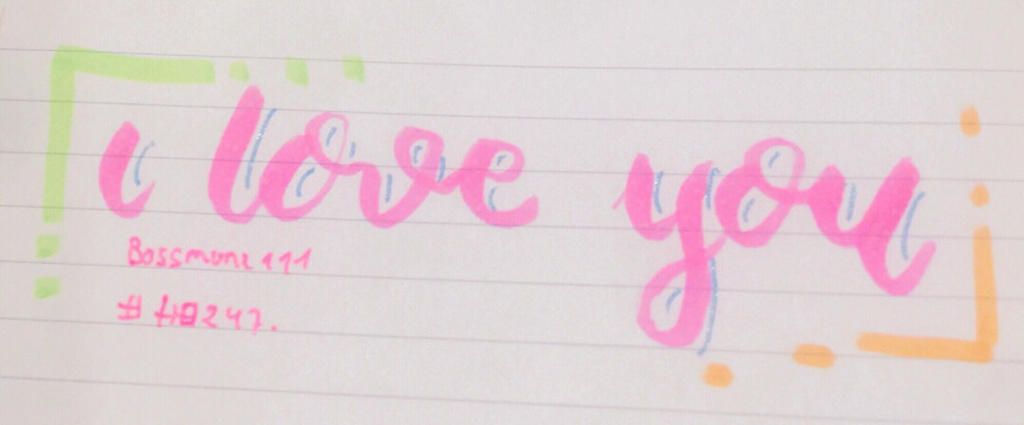 i love you
Bossmone111
# HQ247.